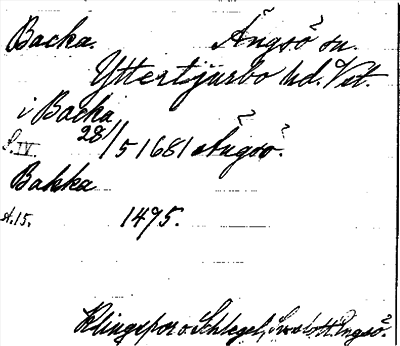 Backa. Ängsö sn.
Yttertjurbo hd. Vst.
i Backa
S. IV. 28/5 1681 Ängsö.
Bakka
st. 15. 1495.
Klingspor o Schlegel, Ängsö.